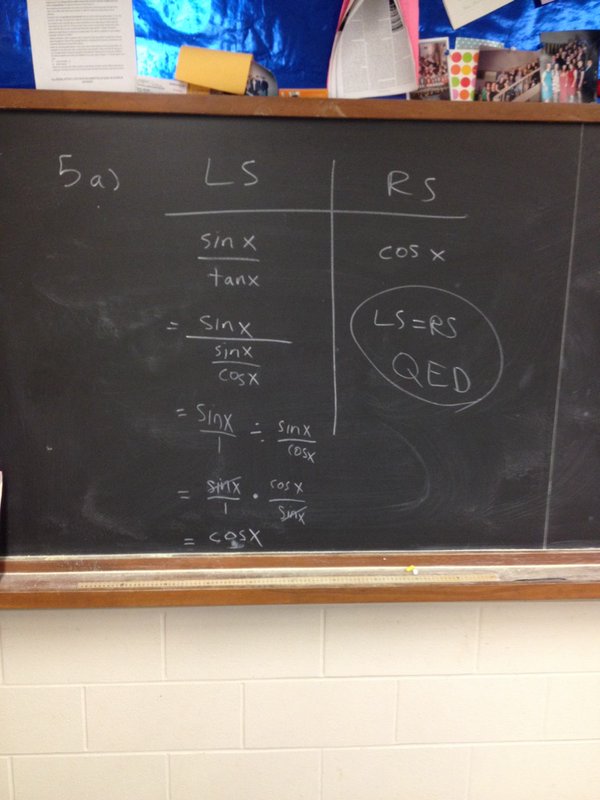 5a) LS RS
sinx
tanx
cosx
= sinx
sinx
cosx
LS=RS
QED
= sinx/1 ÷ sinx/cosx
= sinx/1 · cosx/sinx
= cosx